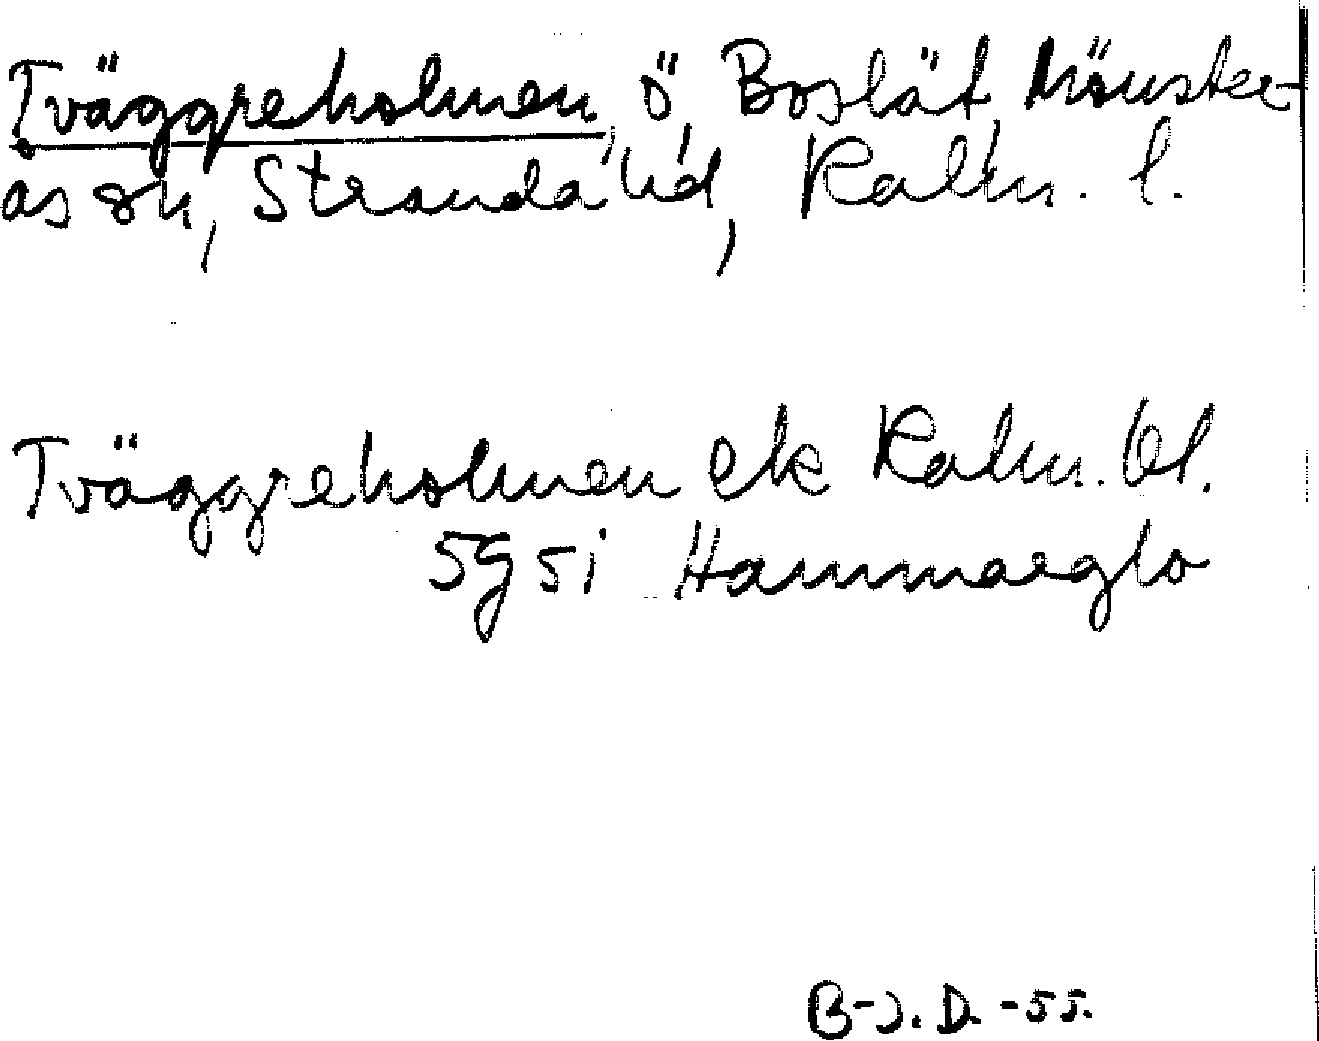 Tväggreholmen, ö, Boslät, Mönster-
ås sn, Stranda hd, Kalm. l.
Tväggreholmen ek Kalm. bl.
5g5i Hammarglo
B-J. D. -55.